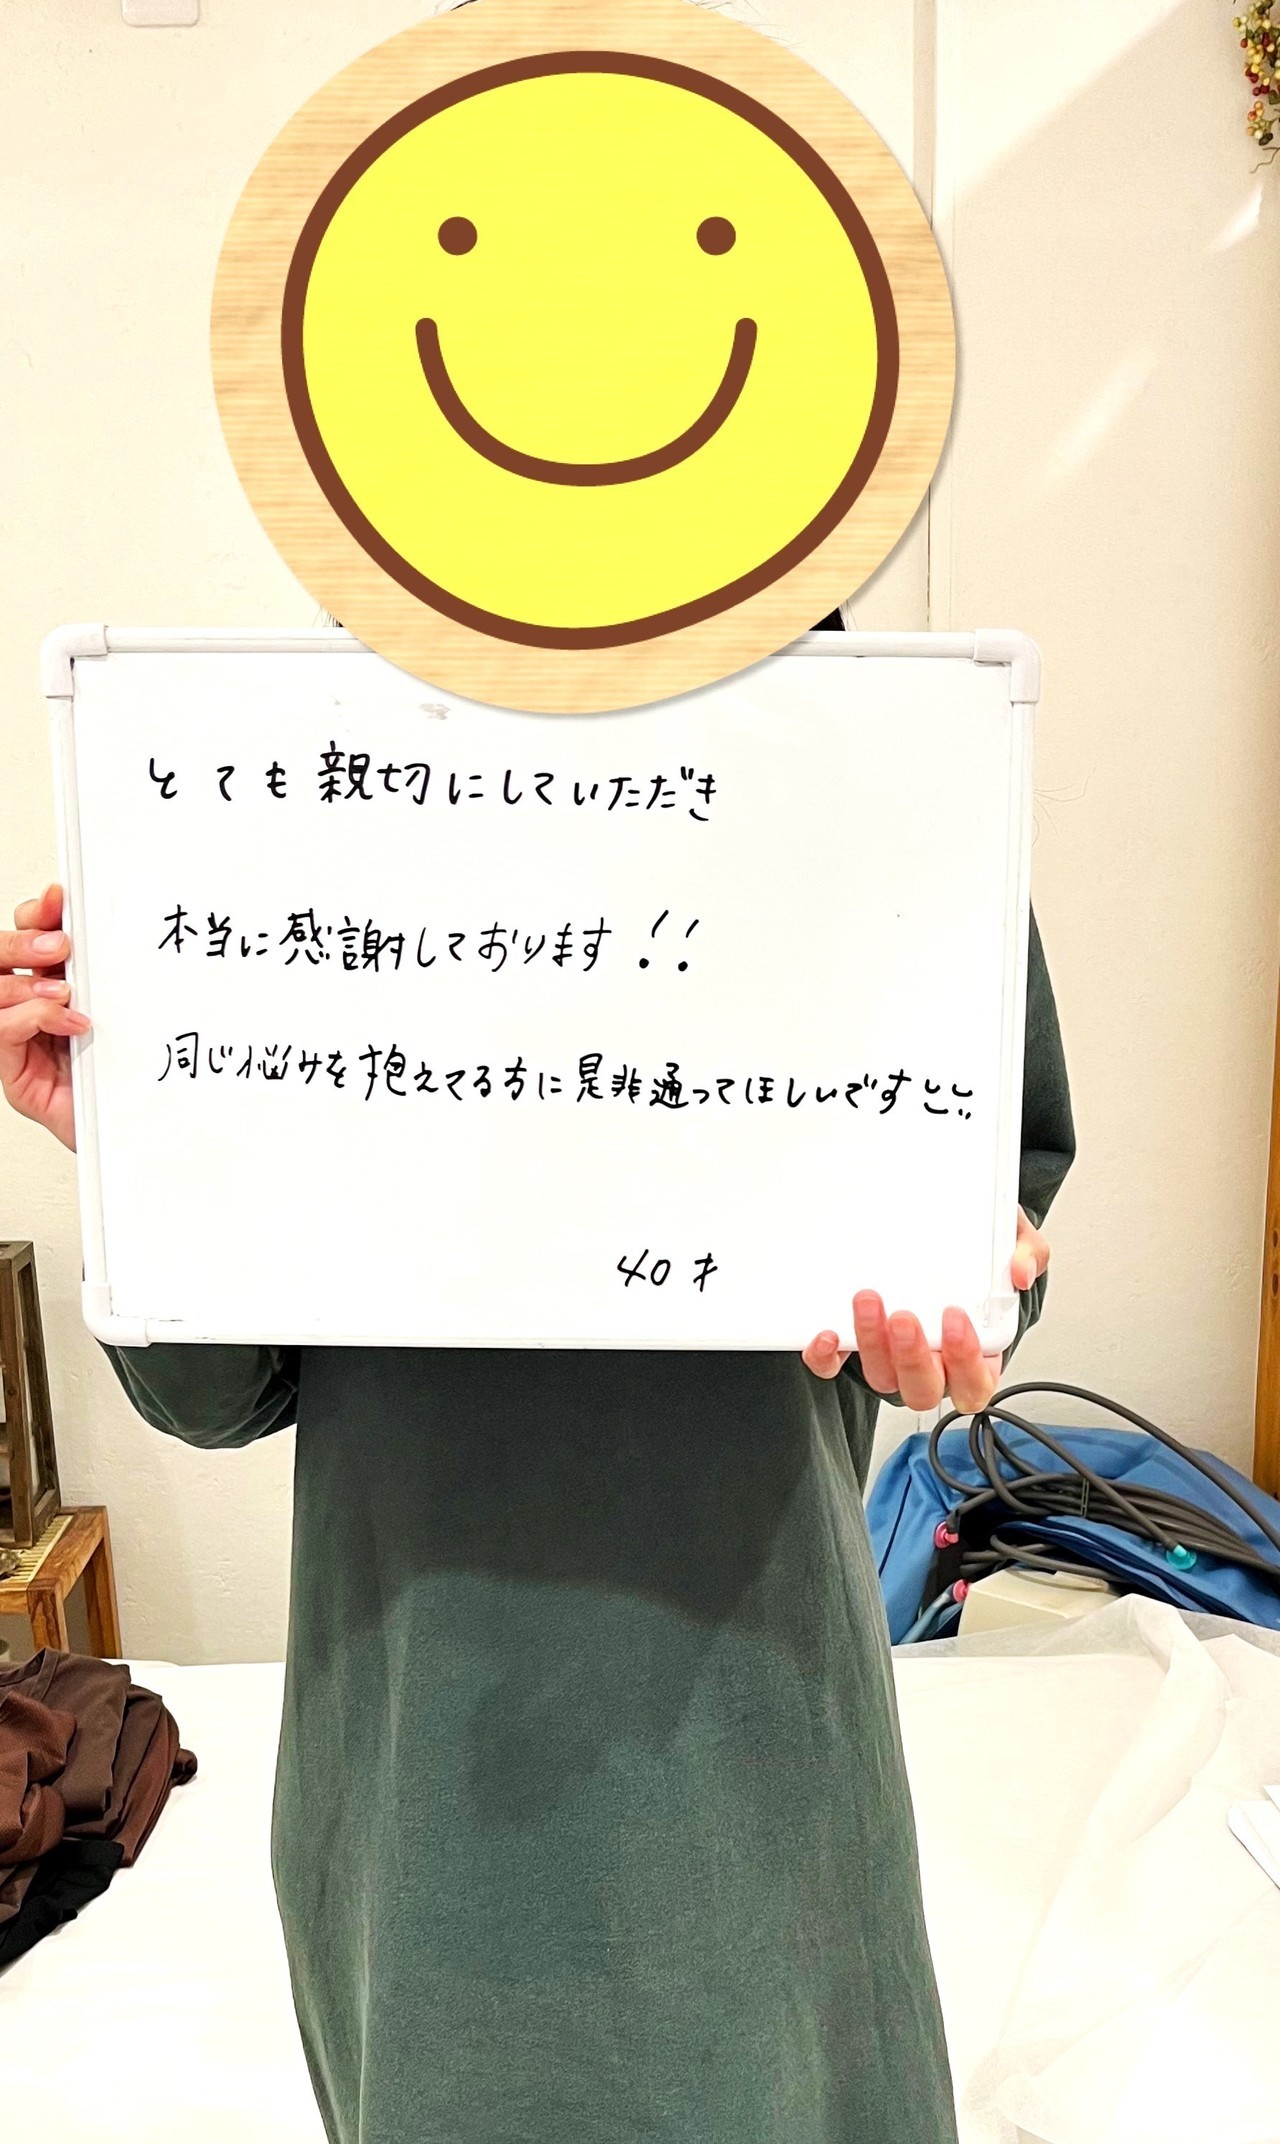 とても親切にしていただき
本当に感謝しております!!
同じ悩みを抱えてる方に是非通ってほしいです
40才